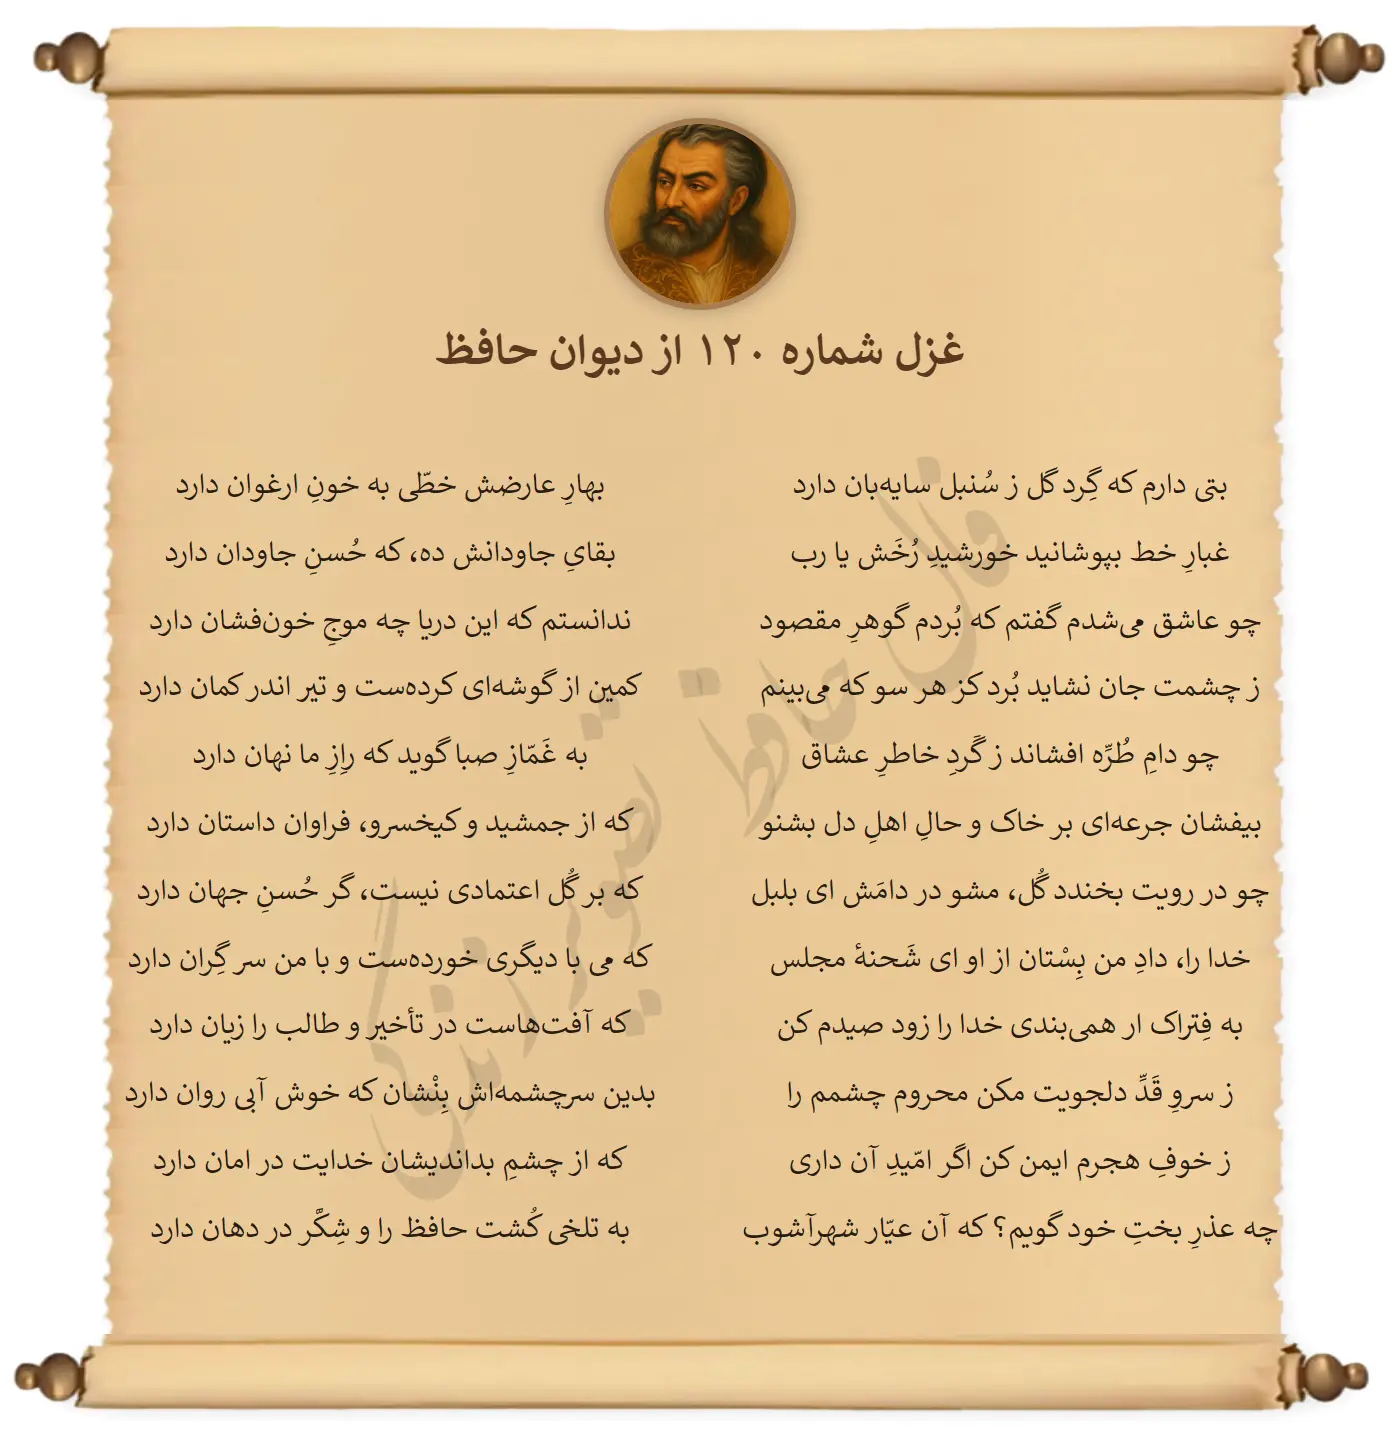 غزل شماره ۱۲۰ از دیوان حافظ
بتی دارم که گِردِ گل ز سُنبل سایه‌بان دارد بهارِ عارضش خطّی به خونِ ارغوان دارد
غبارِ خط بپوشانید خورشیدِ رُخَش یا رب بقایِ جاودانش ده، که حُسنِ جاودان دارد
چو عاشق می‌شدم گفتم که بُردم گوهرِ مقصود ندانستم که این دریا چه موجِ خون‌فشان دارد
ز چشمت جان نشاید بُرد کز هر سو که می‌بینم کمین از گوشه‌ای کرده‌ست و تیر اندر کمان دارد
چو دامِ طُرِّه افشاند ز گَردِ خاطرِ عشاق به غَمّازِ صبا گوید که رازِ ما نهان دارد
بیفشان جرعه‌ای بر خاک و حالِ اهلِ دل بشنو که از جمشید و کیخسرو، فراوان داستان دارد
چو در رویت بخندد گُل، مشو در دامَش ای بلبل که بر گُل اعتمادی نیست، گر حُسنِ جهان دارد
خدا را، دادِ من بِسْتان از او ای شَحنهٔ مجلس که می با دیگری خورده‌ست و با من سر گِران دارد
به فِتراک ار همی‌بندی خدا را زود صیدم کن که آفت‌هاست در تأخیر و طالب را زیان دارد
ز سروِ قَدِّ دلجویت مکن محروم چشمم را بدین سرچشمه‌اش بِنْشان که خوش آبی روان دارد
ز خوفِ هجرم ایمن کن اگر امّیدِ آن داری که از چشمِ بداندیشان خدایت در امان دارد
چه عذرِ بختِ خود گویم؟ که آن عیّار شهرآشوب به تلخی کُشت حافظ را و شِکَّر در دهان دارد
فال حافظ تصویر زندگی